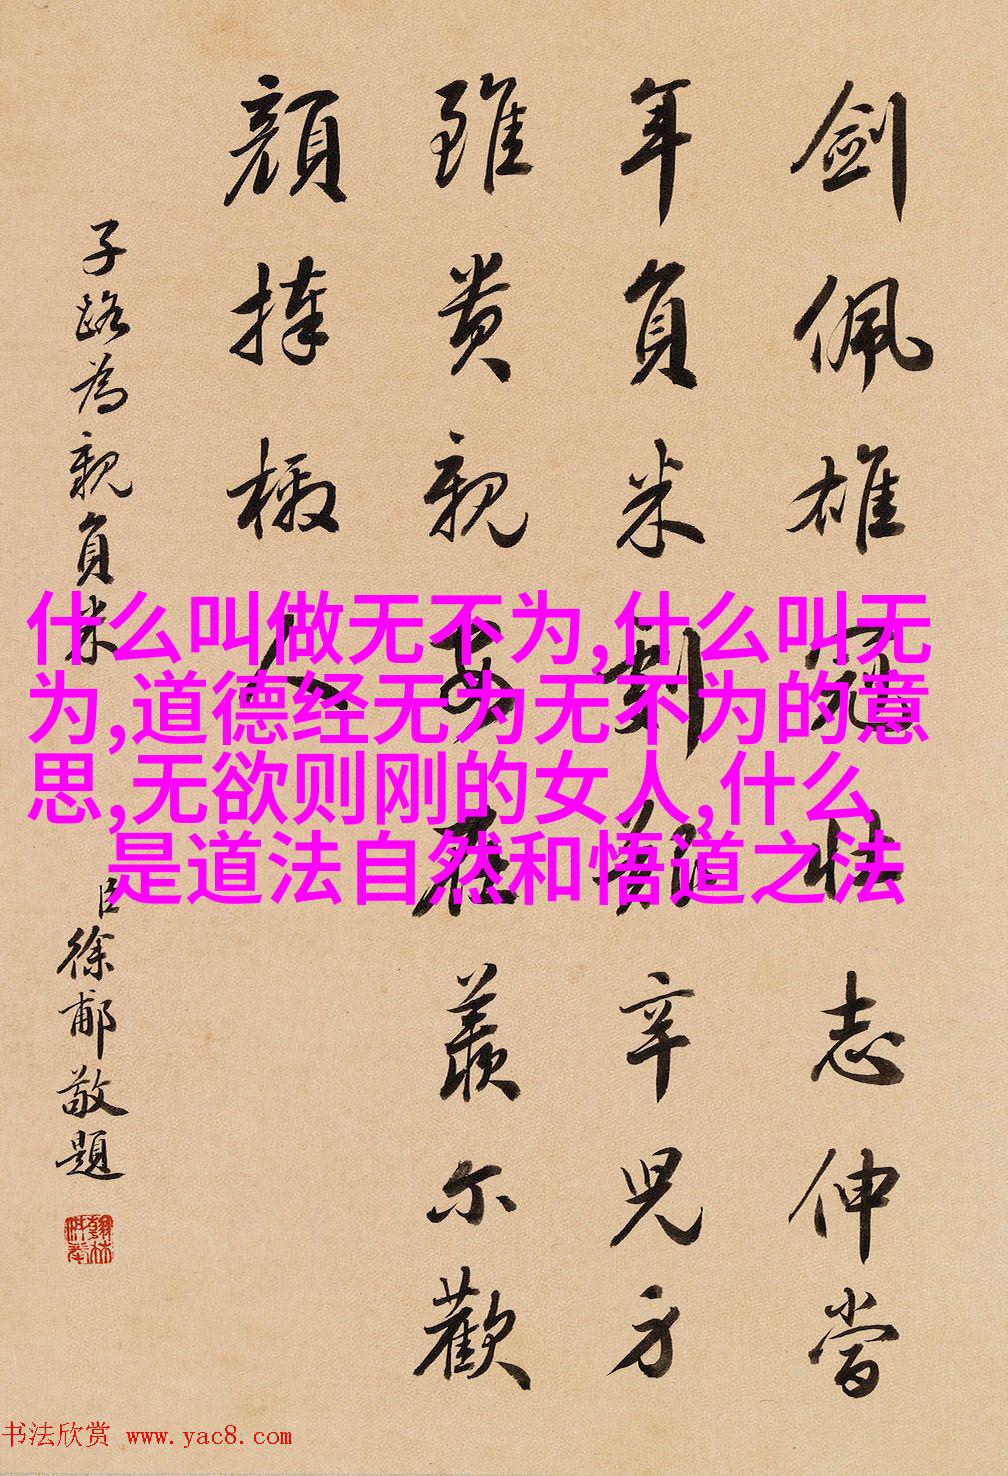 劍佩雄冠壯志伸當
年負米艱辛兒方
雖貴親安在羨爾歡
顏捧檄人
子路為親負米
臣徐郙敬題
什么叫做无不为,什么叫无
为,道德经无为无不为的意
思,无欲则刚的女人,什么
是道法自然和悟道之法
书法欣赏 www.yac8.com